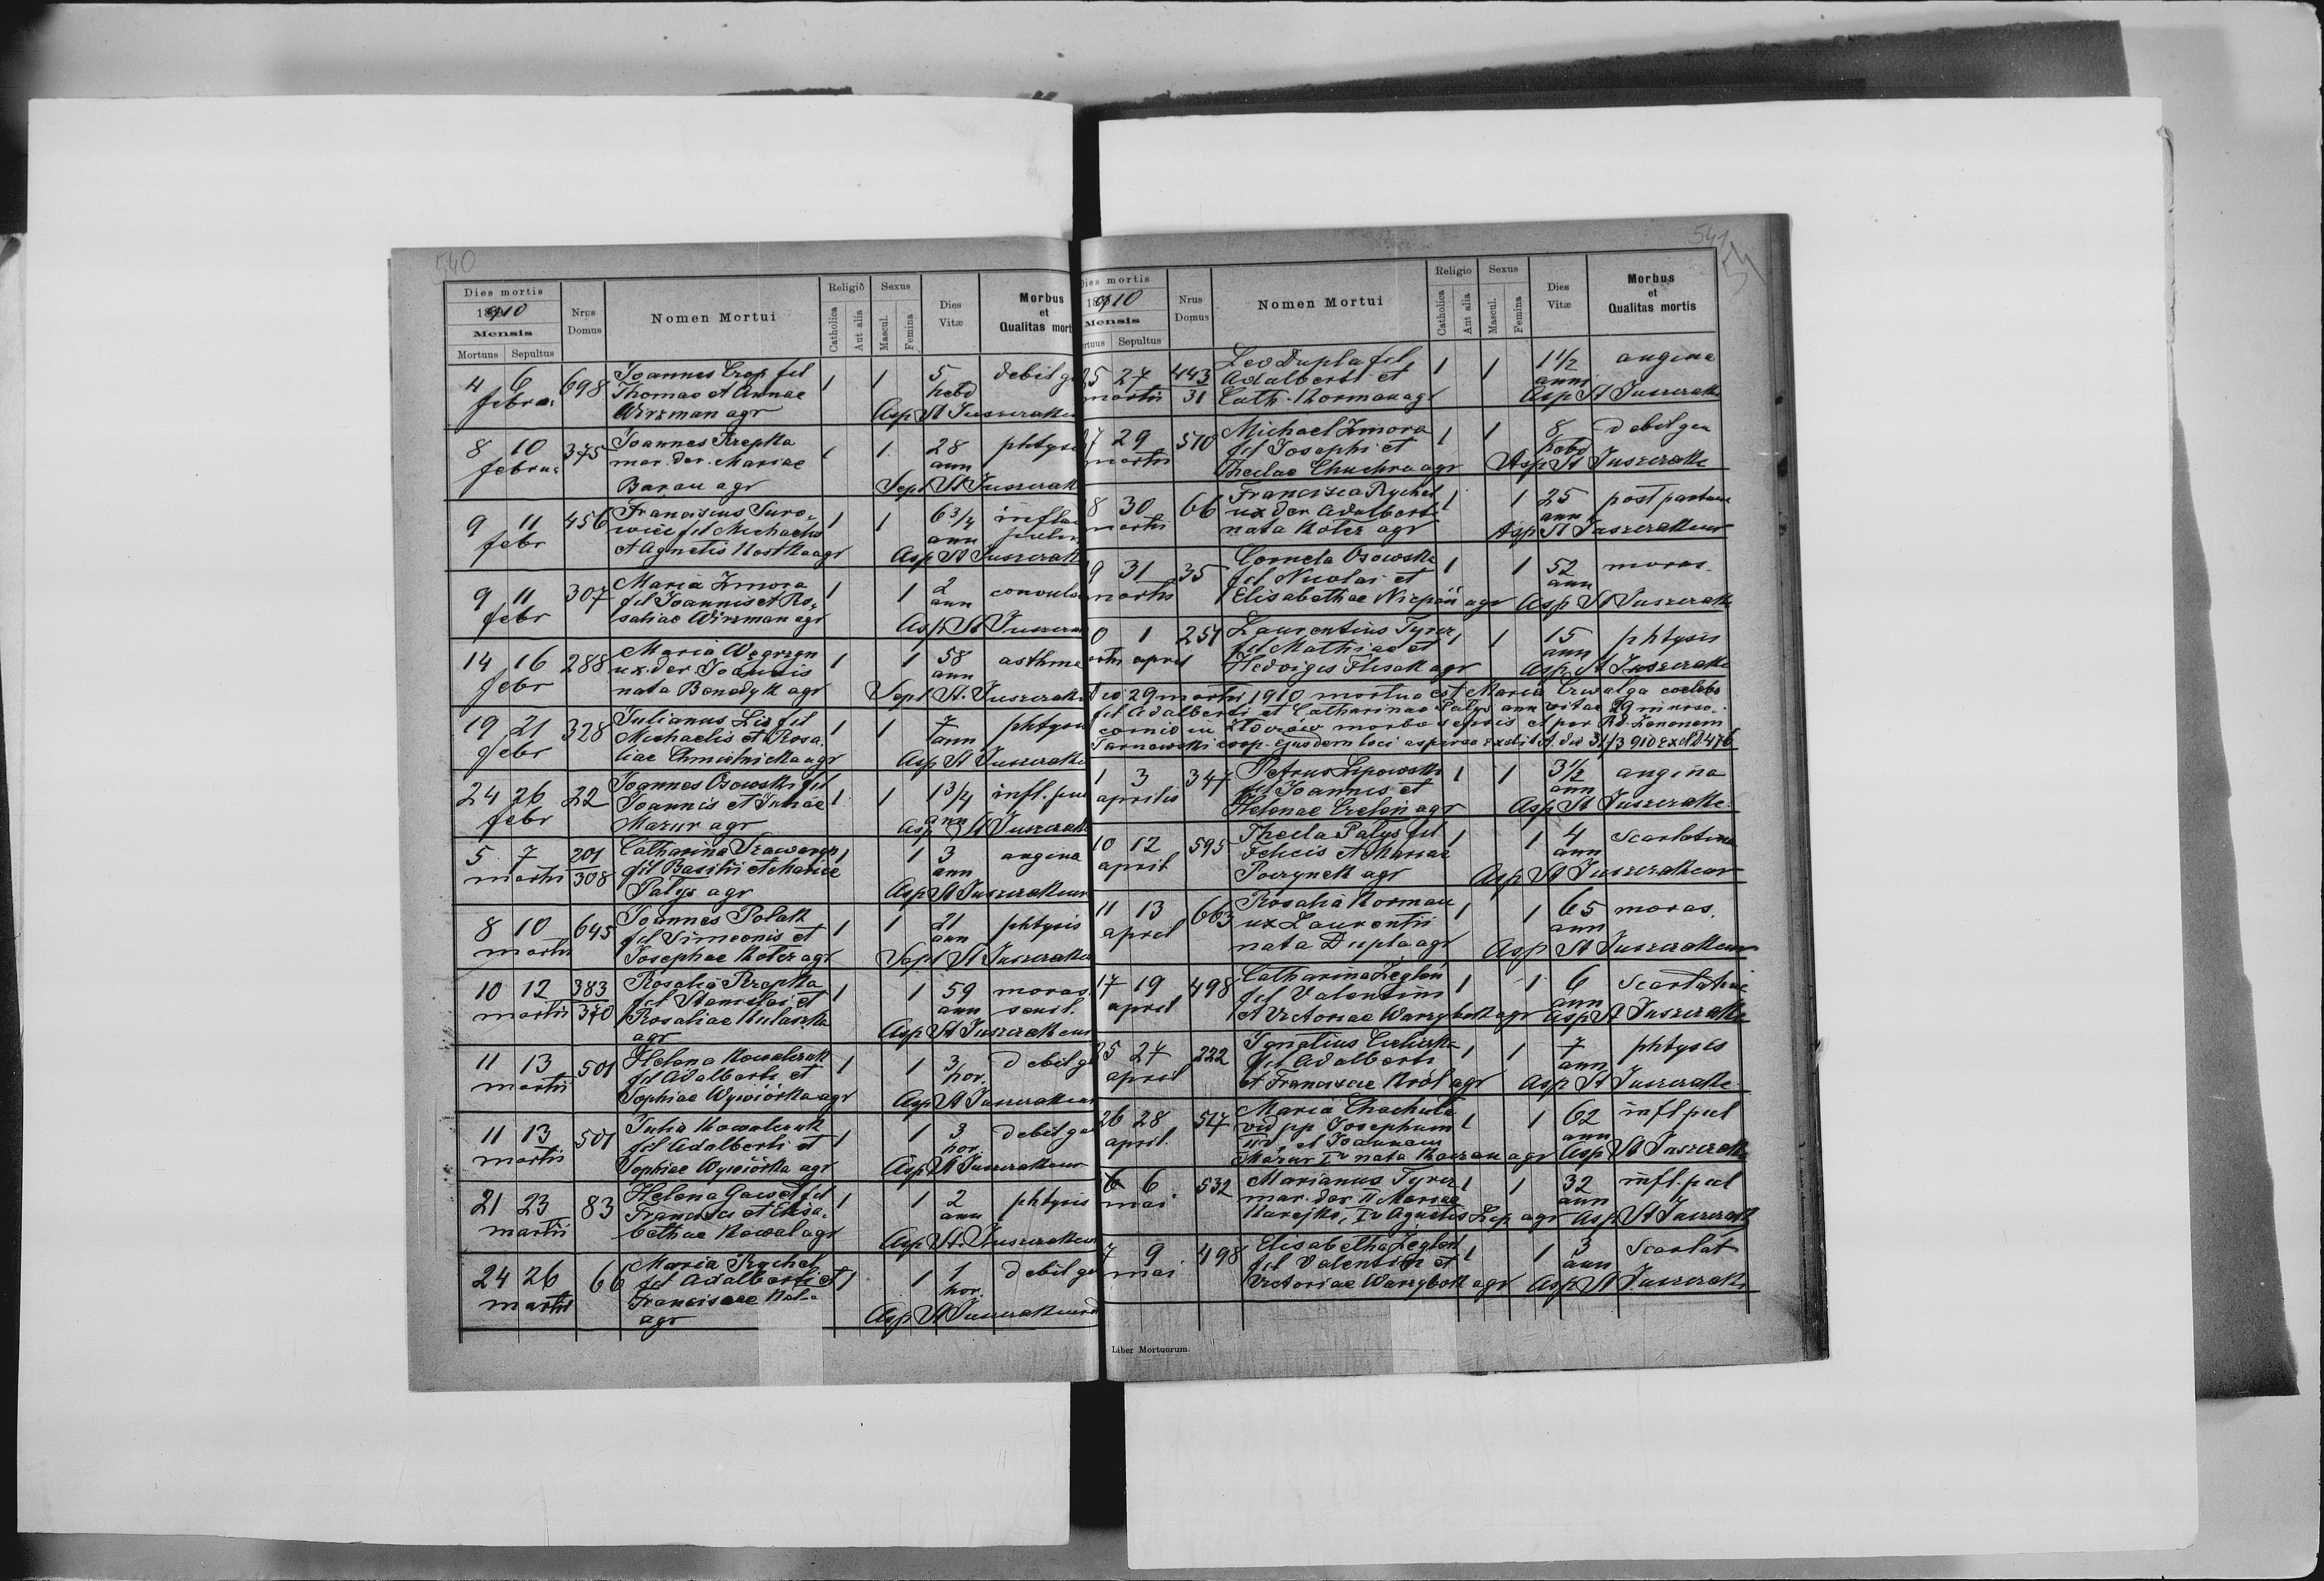 540
Dies mortis
1910
Mensis
Mortuus Sepultus
Nrus Domus
Nomen Mortui
Religio
Catholica
Aut alia
Sexus
Mascul.
Femina
Dies Vitæ
Morbus et Qualitas mort
4 6 698 Joannes Crop fil 1 1 5 debil ge
febru: Thomae et Annae hebd
Wirzman agr Asp St Juszcrakie
8 10 375 Joannes Rzepka 1 1 28 phtysi
febru: mar. der. Mariae ann
Baran agr Sepl St Juszcrak
9 11 456 Franciscus Suro- 1 1 6 3/4 infla
febr wiec fil Michaelis ann pulm
et Agnetis Kostka agr Asp St Juszcrak
9 11 307 Maria Zmora 1 1 2 convuls
febr fil Joannis et Ro- ann
saliae Wirzman agr Asp St Juszcra
14 16 288 Maria Węgrzyn 1 1 58 asthma
febr ux. der Joannis ann
nata Benedyk agr Sepl St. Juszcrak
19 21 328 Julianus Lis fil 1 1 7 phtysis
febr Michaelis et Rosa- ann
liae Chmielnicka agr Asp St Juszcrakie
24 26 22 Joannes Osowski fil 1 1 1 3/4 infl. pul
febr Joannis et Juliae ann
Mazur agr Asp St Juszcrak
5 7 201 Catharina Szawaryn 1 1 3 angina
martii 308 fil Basilii et Mariae ann
Patys agr Asp St Juszcrakiewi
8 10 645 Joannes Polak 1 1 21 phtysis
martii fil Simeonis et ann
Josephae Koter agr Sepl St Juszcrakie
10 12 383 Rosalia Rzepka 1 1 59 maras
martii 370 fil Stanislai et ann senil.
Rosaliae Kulaszka
agr Asp St Juszcrakiewi
11 13 501 Helena Kowalczuk 1 1 3 debil ge
martii fil Adalberti et hor.
Sophiae Wywiórka agr Asp St Juszcrakiewi
11 13 501 Julia Kowalczuk 1 1 3 debil ge
martii fil Adalberti et hor.
Sophiae Wywiórka agr Asp St Juszcrakiew
21 23 83 Helena Gaweł fil 1 1 2 phtysis
martii Francisci et Elisa- ann
bethae Kowal agr Asp St. Juszcrakiew
24 26 66 Maria Rychel 1 1 1 debil ge
martii fil Adalberti et hor.
Franciscae
agr Asp St Juszcrakiewi
541
Dies mortis
1910
Mensis
rtuus Sepultus
Nrus Domus
Nomen Mortui
Religio
Catholica
Aut alia
Sexus
Mascul.
Femina
Dies Vitæ
Morbus et Qualitas mortis
25 27 443 Leo Dupla fil 1 1 1 1/2 angina
martii 31 Adalberti et anni
Cath. Korman agr Asp St Juszcrakie
27 29 510 Michael Zmora 1 1 8 debil gen
martii fil Josephi et hebd
Theclae Chuchra agr Asp St Juszcrakie
8 30 66 Francisca Rychel 1 1 25 post partum
martii ux der Adalberti ann
nata Koter agr Asp St Juszcrakiewi
9 31 35 Cornela Osowska 1 1 52 maras.
martii fil Nicolai et ann
Elisabethae Niepań agr Asp St Juszcrakie
0 1 251 Laurentius Tyrcz 1 1 15 phtysis
april fil Mathiae et ann
Hedvigis Flisak agr Asp. St Juszcrakie
29 martii 1910 mortua est Maria Czwalga coelebs
fil Adalberti et Catharinae Patys ann vitae 29 in noso-
comio in Złoczów morbo sepsis et per Rd. Zenonem
Tarnawski coop. ejusdem loci aspersa exstitit. die 31/3 910 ex N 476
1 3 347 Petrus Lipowski 1 1 3 1/2 angina
aprilis fil Joannis et ann
Helenae Czelen agr Asp St Juszcrakie
10 12 595 Thecla Patys fil 1 1 4 Scarlatina
april Felicis et Mariae ann
Poczynek agr Asp St Juszcrakiewi
11 13 663 Rosalia Korman 1 1 65 maras.
april ux Laurentii ann
nata Dupla agr Asp St Juszcrakiewi
17 19 498 Catharina Żegleń 1 1 6 Scarlatina
april fil Valentini ann
et Victoriae Warzybok agr Asp St Juszcrakie
25 27 222 Ignatius Cichicka 1 1 7 phtysis
april fil Adalberti ann
et Franciscae Król agr Asp St Juszcrakie
26 28 517 Maria Chachuła 1 1 62 infl pul
april. vid pp Josephum ann
IIv et Joannem
Mazur Iv nata Koczan agr Asp St Juszcrakie
6 6 532 Marianus Tyrcz 1 1 32 infl. pul
mai mar. der II Mariae ann
Karejko, Iv Agnetis Łep agr Asp St Juszcrak
7 9 498 Elisabetha Żegleń 1 1 3 Scarlat
mai fil Valentini et ann
Victoriae Warzybok agr Asp St Juszcrakie
Liber Mortuorum.